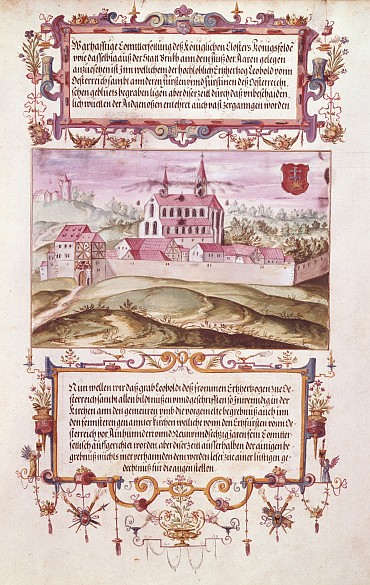 Warhafftige Contterfettung deß Königlichen Closters Königsfeldt
wie dasselbig auß der Statt Brukh ann dem fluß der Aaren gelegen
anzusehen ist Inn wellichem der hochloblich Ertzhertzog Leopold vonn
Osterreich sambt anderen fürsten unnd fürstinen deß Osterreichi
schen geblüets begraben ligen aber diser Zeit durch daß unbeschaiden
lich wüetten der Aidgenossen entehret auch vasst zerganngen worden
Nun wellen wir daß grab Leopoldi deß frommen Ertzhertzogen zue Os
terreich sambt allen bildtnußen unnd geschrifften so Inwendig in der
Kirchen ann den gemeüren unnd die vorgemelte begrebnuß auch inn
den fennstern gen annuer kirchen welliche vonn den Ertzfürsten vonn Os
terreich vor Ainhundert unnd Neünundsechtzig Jaren sein Conntter
fettisch auffgerichtet worden aber diser Zeit ausserhalb der ainigen be
grebnuß nichts mer verhannden dem wordern leser zu ainer lüstigen ge
dechtnuß für die augen stellen